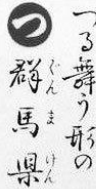 つる舞う形の
つ
群馬県
ぐんまけん